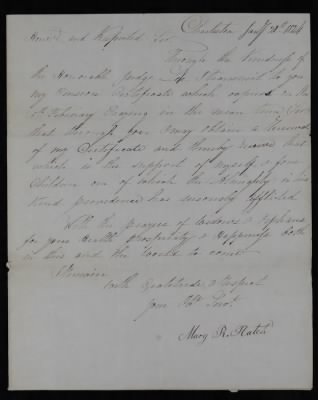 Charleston Jany 28th 1824
Hond and Respected Sir
Through the kindness of
the Honorable Judge I transmit to you
my Pension Certificate which expires on the
February Praying in the mean time
that through you I may obtain a Renewal
of my Certificate and thereby receive that
which is the support of myself & four
Children one of which the Almighty in his
kind providence has seriously afflicted
With the prayers of Widows & Orphans
for your Health Prosperity & Happiness both
in this and the World to come
I Remain
with Gratitude & Respect
your Obt Servt
Mary R. Hatch